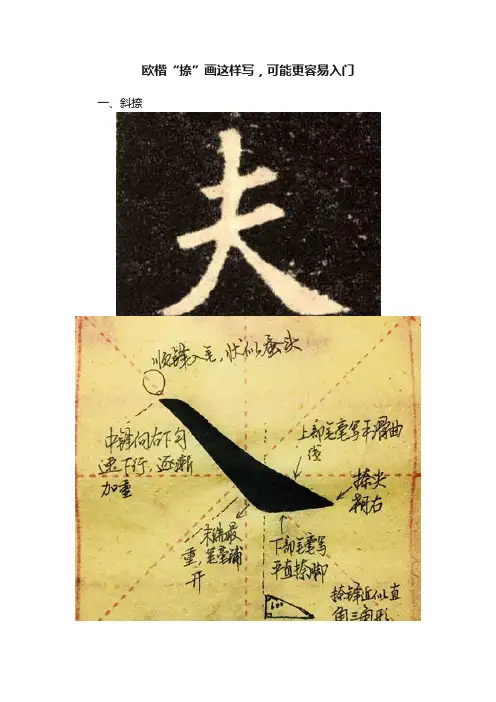 欧楷“捺”画这样写，可能更容易入门
一、斜捺
夫
顺锋入毛，状似蚕头
中锋向右下匀
速下行，逐渐
加重
上部笔毫写平滑曲
线
捺尖
朝右
末端最
重，笔毫铺
开
下部笔毫写
平直捺脚
60°
捺锋近似直
角三角形